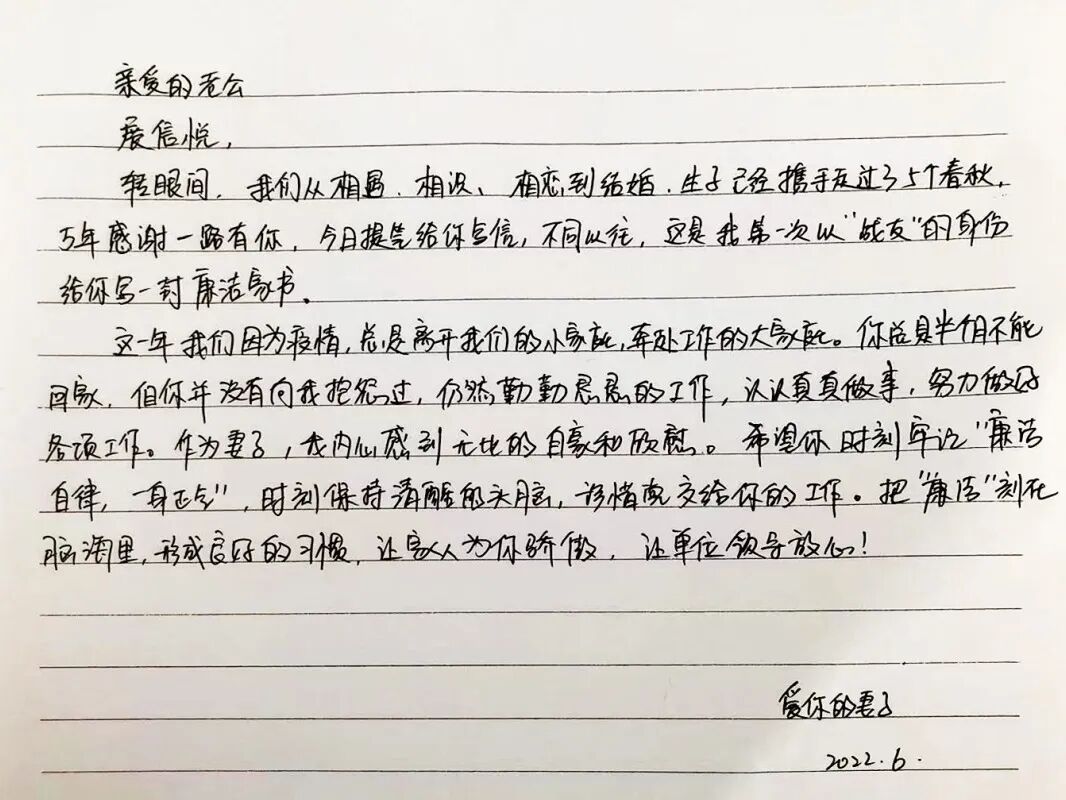 亲爱的老公
展信悦，
转眼间，我们从相遇、相识、相恋到结婚、生子已经携手走过了5个春秋，
5年感谢一路有你，今日提笔给你写信，不同以往，这是我第一次以“战友”的身份
给你写一封廉洁家书。
这一年我们因为疫情，总是离开我们的小家庭，奔赴工作的大家庭。你总是半个月不能
回家，但你并没有向我抱怨过，仍然勤勤恳恳的工作，认认真真做事，努力做好
各项工作。作为妻子，我内心感到无比的自豪和欣慰。希望你时刻牢记“廉洁
自律，一身正气”，时刻保持清醒的头脑，诊情况交给你的工作。把“廉洁”刻在
脑海里，形成良好的习惯，让家人为你骄傲，让单位领导放心！
爱你的妻子
2022.6.